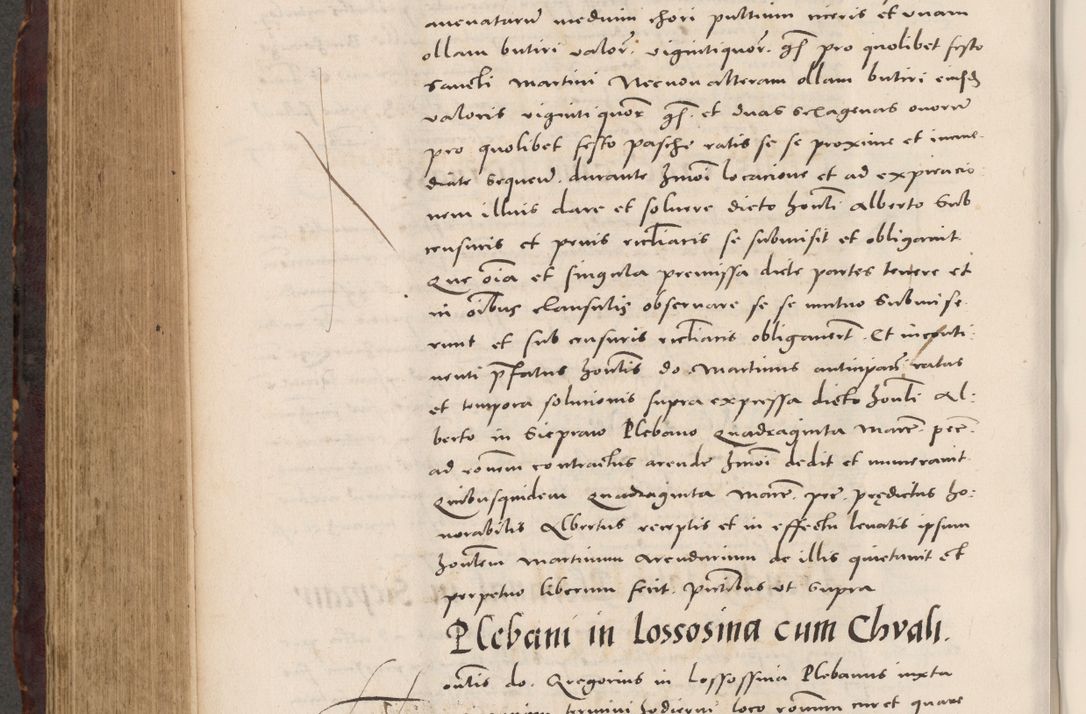 avenaturum medium chori pultium niceris et unam
ollam butiri valor. vigintiquor. gſ pro quolibet festo
Sancti Martini Necnon alteram ollam butiri eiusd
valoris viginti quor gſ. et duas sexagenas ovorum
pro quolibet festo pasche ratis se se proxime et imme-
diate sequen. durante hmoi locacione et ad expiracio
nem illius dare et solvere dicto honli Alberto Sub
censuris et penis eccliacis se submisit et obligavit
Que oia et singula premissa dicte partes tenere et
in oibus clausulis observare se se mutuo Submise
runt et sub censuris eccliacis obligaverunt. Et inconti-
nenti pfatus honlis do. Martinus anticipan ratas
et tempora solucionis supra expressa dicto honli Al:
berto in Siepraw Plebano Quadraginta marc. pec.
ad ronem contractus arende hmoi dedit et numeravit
Quibusquidem Quadraginta marc. pec. prędictus ho:
norabilis Albertus receptis et in effectu levatis ipsum
honlem Martinum Arendarium de illis quietavit et
perpetuo liberum fecit. Pntibus ut supra
Plebani in Lossosina cum Chvali.
onlis do. Gregorius in Lossossina Plebanus iuxta
termini hodierni loco ronum cur et quare